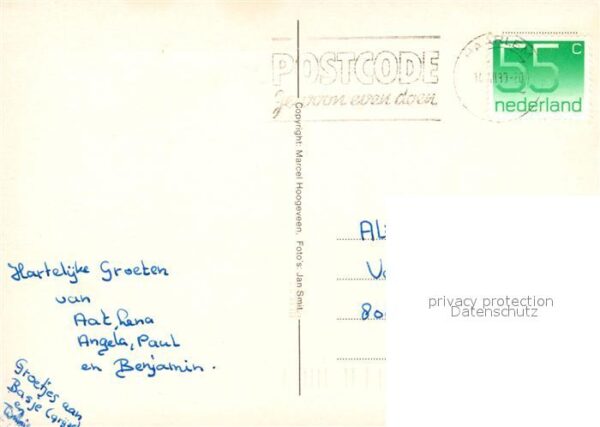 POSTCODE
gewoon even doen
55 c
nederland
Copyright: Marcel Hoogeveen, Foto's: Jan Smit
Hartelijke Groeten
van
Aat, Lena
Angela, Paul
en Benjamin.
Groetjes aan
Basje
privacy protection
Datenschutz